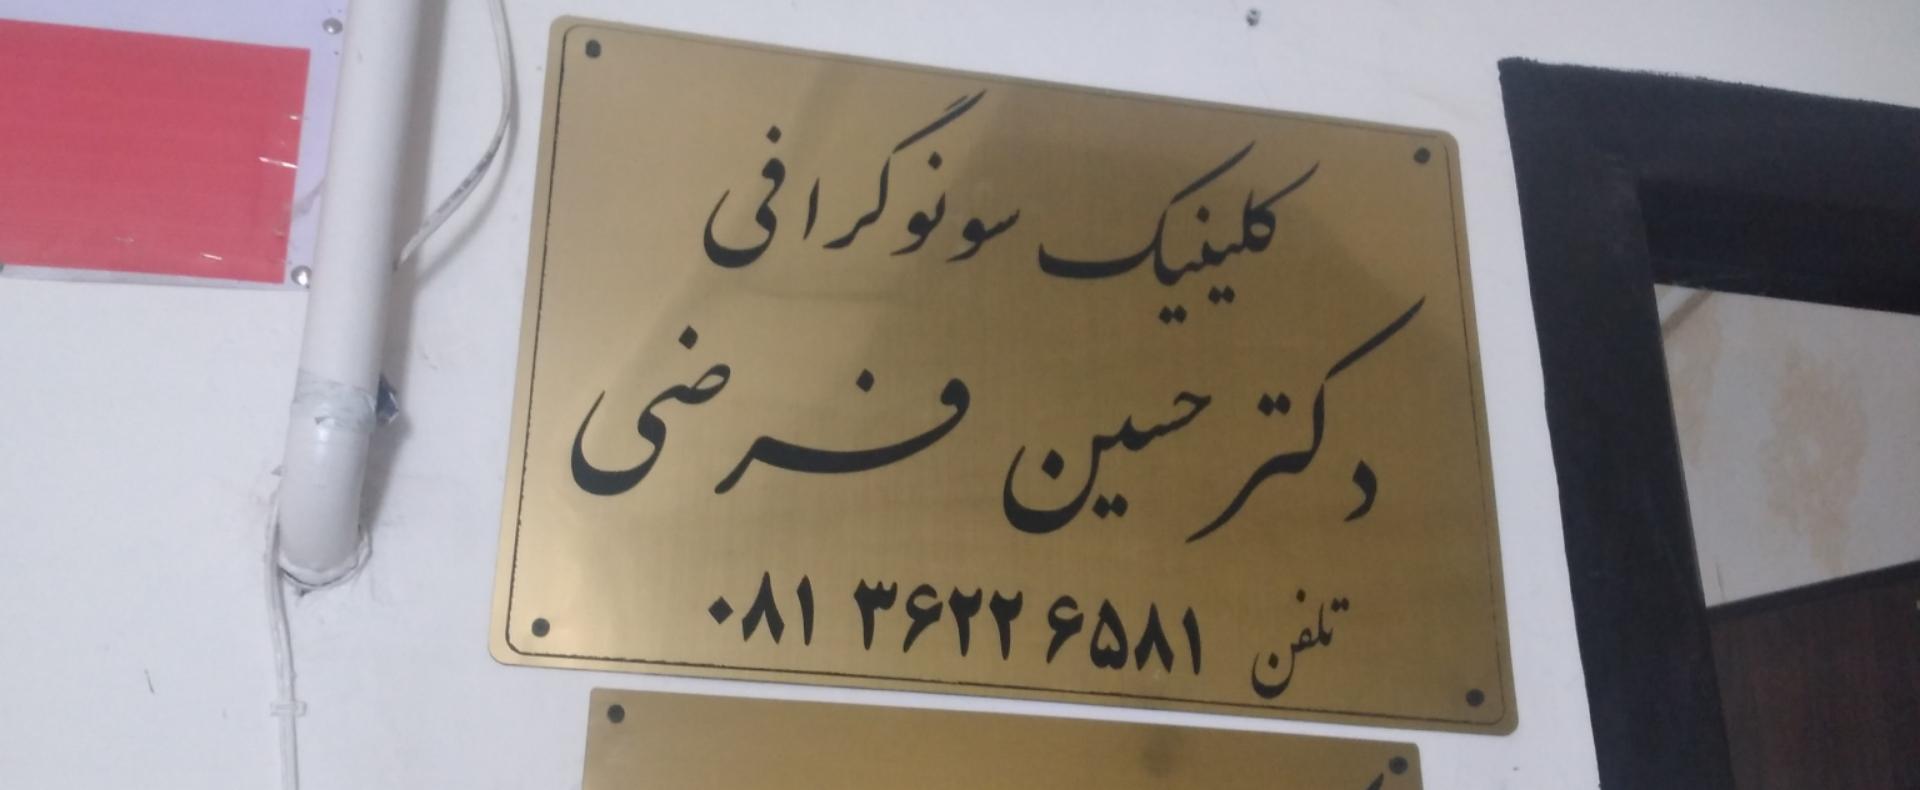 کلینیک سونوگرافی
دکتر حسین فرضی
تلفن ۰۸۱ ۳۶۲۲ ۶۵۸۱